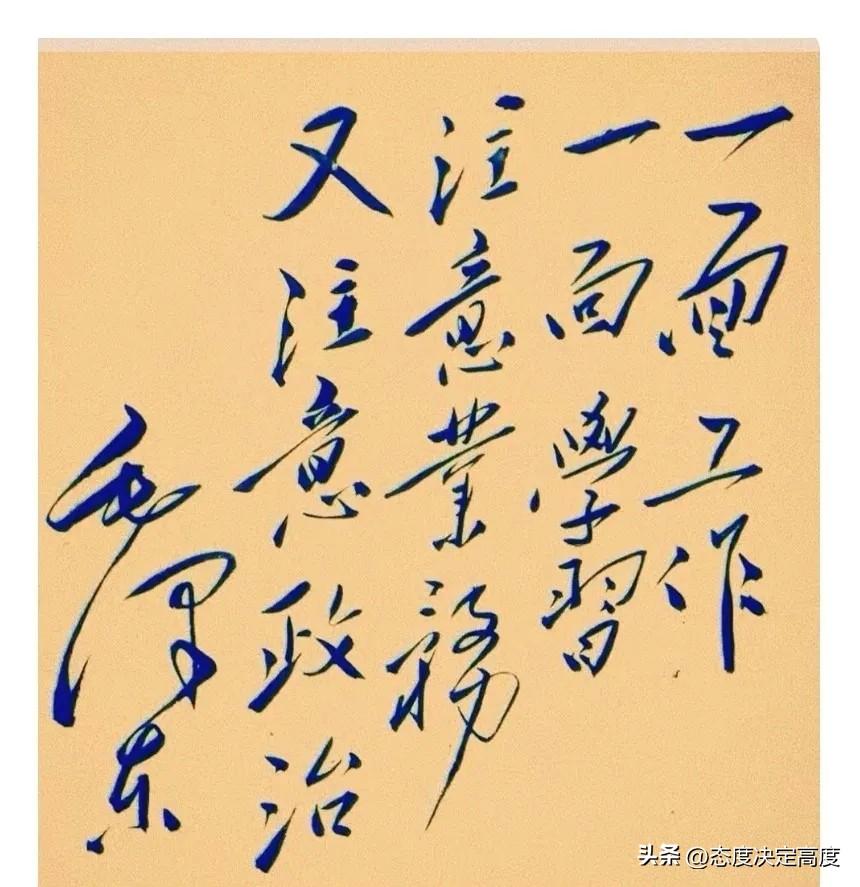 一面工作
一面學習
注意業務
又注意政治
毛澤东
头条 @态度决定高度